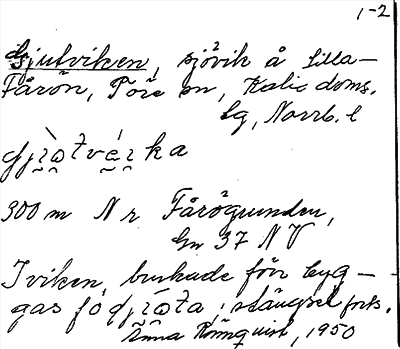 1-2
Gjutviken, sjövik å Lilla-
Fårön, Töre sn, Kalix doms.
Lg, Norrb. l
300 m N r Fårögrunden,
Gn 37 NV
I viken, brukade förr byg-
gas
stängsel forts.
Anna Rönnquist, 1950